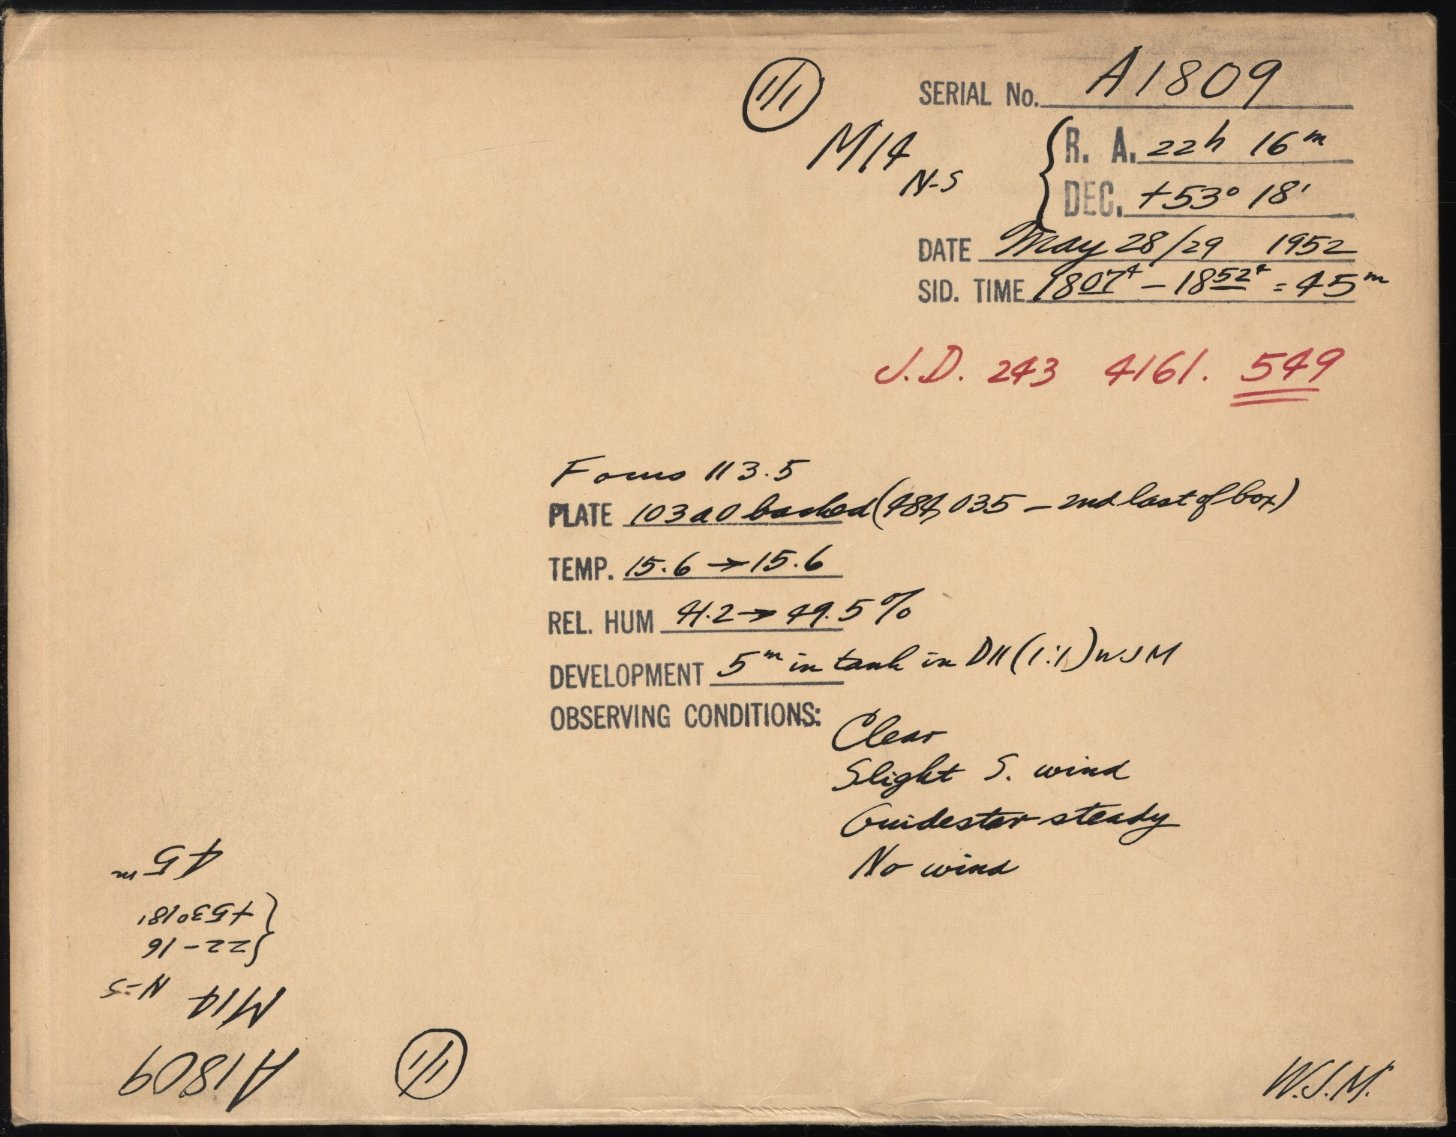 (11)
SERIAL No. A1809
M14 N-S
R. A. 22h 16m
DEC. +53° 18'
DATE May 28/29 1952
SID. TIME 1807+ – 1852+ = 45m
J.D. 243 4161. 549
Focus 113.5
PLATE 103aO backed (484,035 – 2nd last of box)
TEMP. 15.6 → 15.6
REL. HUM 41.2 → 49.5%
DEVELOPMENT 5m in tank in D11 (1:1) WJM
OBSERVING CONDITIONS:
Clear
Slight S. wind
Guidestar steady
No wind
W.J.M.
(11)
A1809
M14 N-S
22-16
+53°18'
45m